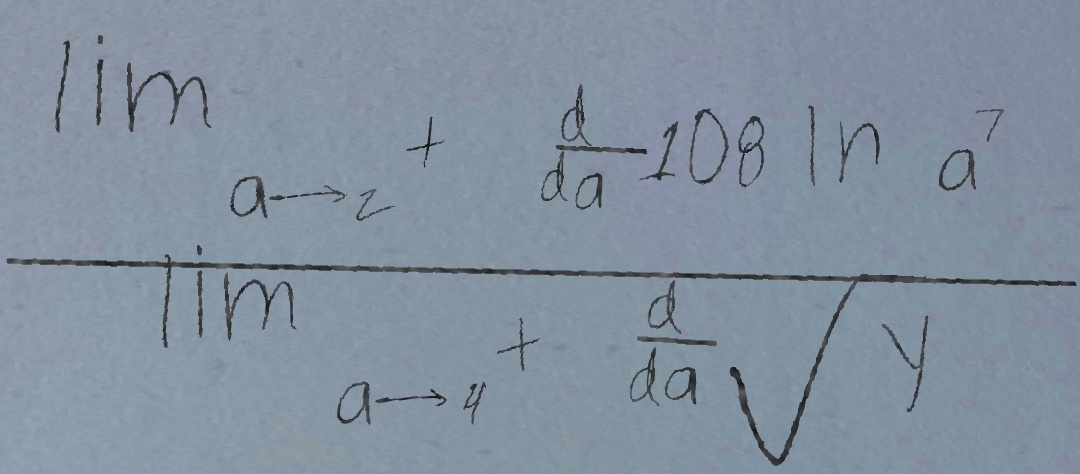 lim a→2⁺ d/da 108 ln a⁷
lim a→4⁺ d/da √y